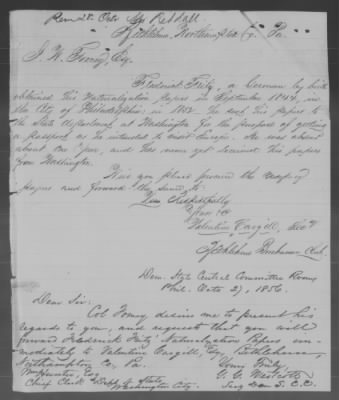 Bethlehem, Northampton Co. Pa.
J. W. Forney, Esq.
Frederick Fritz, a German by birth
obtained his Naturalization Papers in September 1844, in
the City of Philadelphia. in 1852. He sent his Papers to
the State department at Washington for the purpose of getting
a passport as he intended to visit Europe. He was absent
about one year, and has never yet received his papers
from Washington.
Will you please procure the
papers and forward the same to
Yours Respectfully
Valentine Cargill, Secy
Bethlehem Buchanan Club.
Dem. State Central Committee Rooms
Phil. Octo 27, 1856.
Dear Sir:
Col Forney desires me to present his
regards to you, and request that you will
forward Frederick Fritz, Naturalization Papers im-
mediately to Valentine Cargill, Esq, Bethlehem,
Northampton Co, Pa.
Yours Truly,
Wm Hunter, Esq
Chief Clerk Dept of State
Washington City.